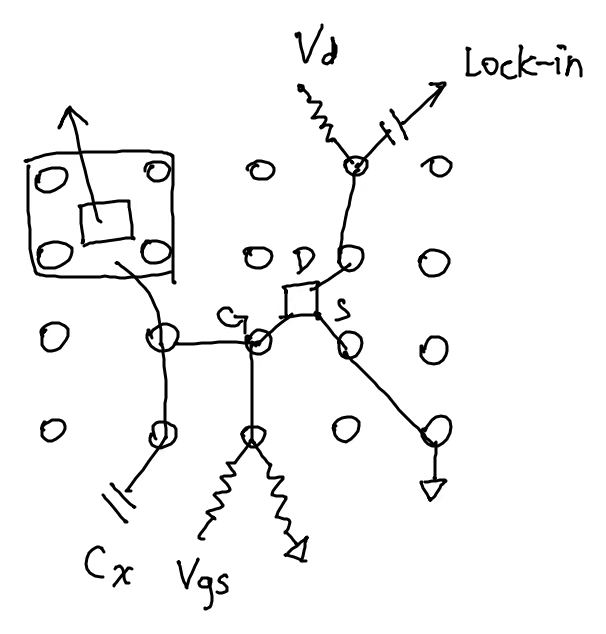 Vd
Lock-in
D
G
S
Cx
Vgs